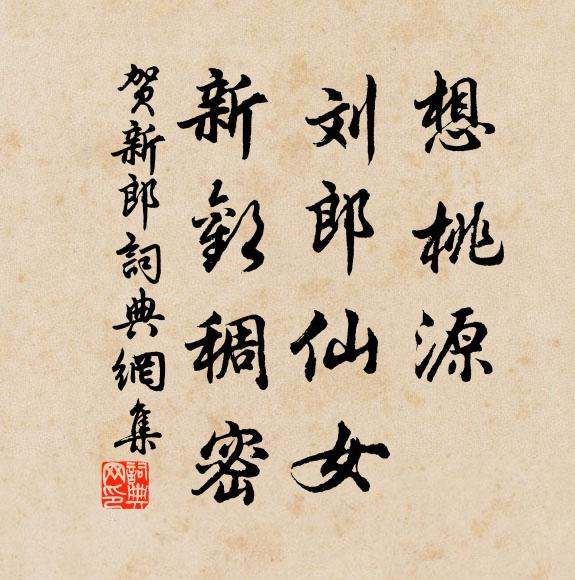 想桃源
刘郎仙女
新歡稠密
贺新郎詞典網集
詞典网印